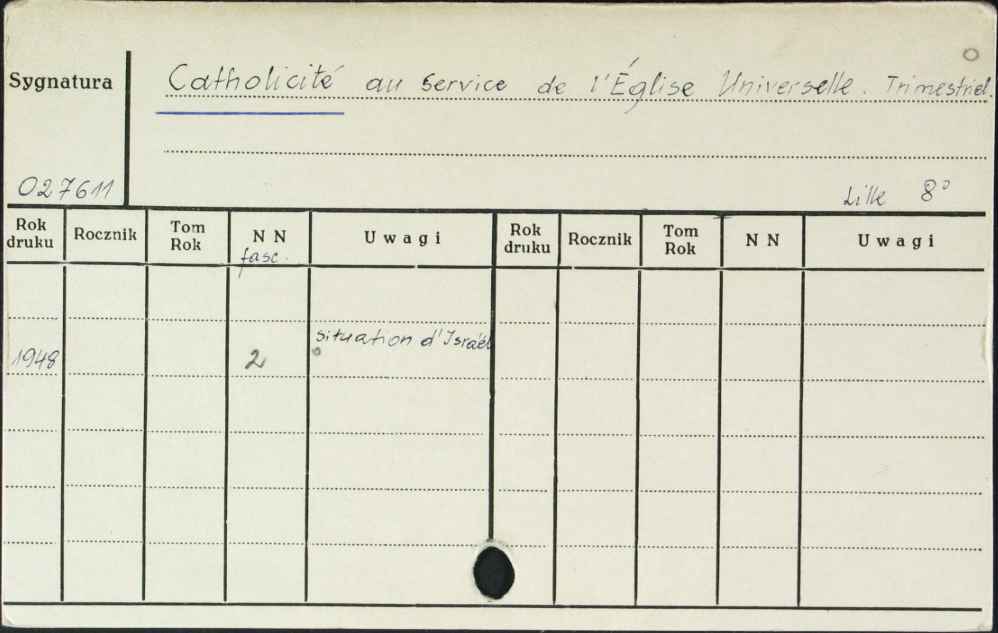 Sygnatura
Catholicité au service de l'Église Universelle. Trimestriel.
027611
Lille 8°
Rok druku Rocznik Tom Rok N N Uwagi Rok druku Rocznik Tom Rok N N Uwagi
fasc.
1948 2 situation d'Israél